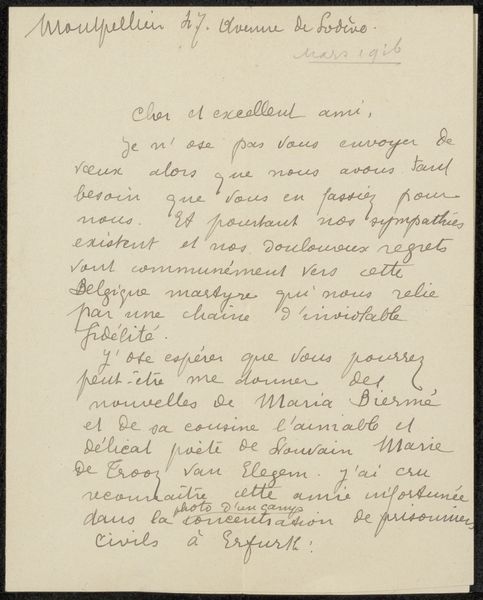 Montpellier 47. Avenue de Lodève.
Mars 1916
Cher et excellent ami,
Je n'ose pas vous envoyer de
vœux alors que nous avons tant
besoin que vous en fassiez pour
nous. Et pourtant nos sympathies
existent et nos douloureux regrets
vont communément vers cette
Belgique martyre qui nous relie
par une chaine d'inviolable
fidélité.
J'ose espérer que vous pourrez
peut-être me donner des
nouvelles de Maria Biermé
et de sa cousine l'aimable et
délicat poète de Louvain Marie
de Trooz Van Elegem. J'ai cru
reconnaître cette amie infortunée
photo d'un camp
dans la concentration de prisonniers
civils à Erfurt: